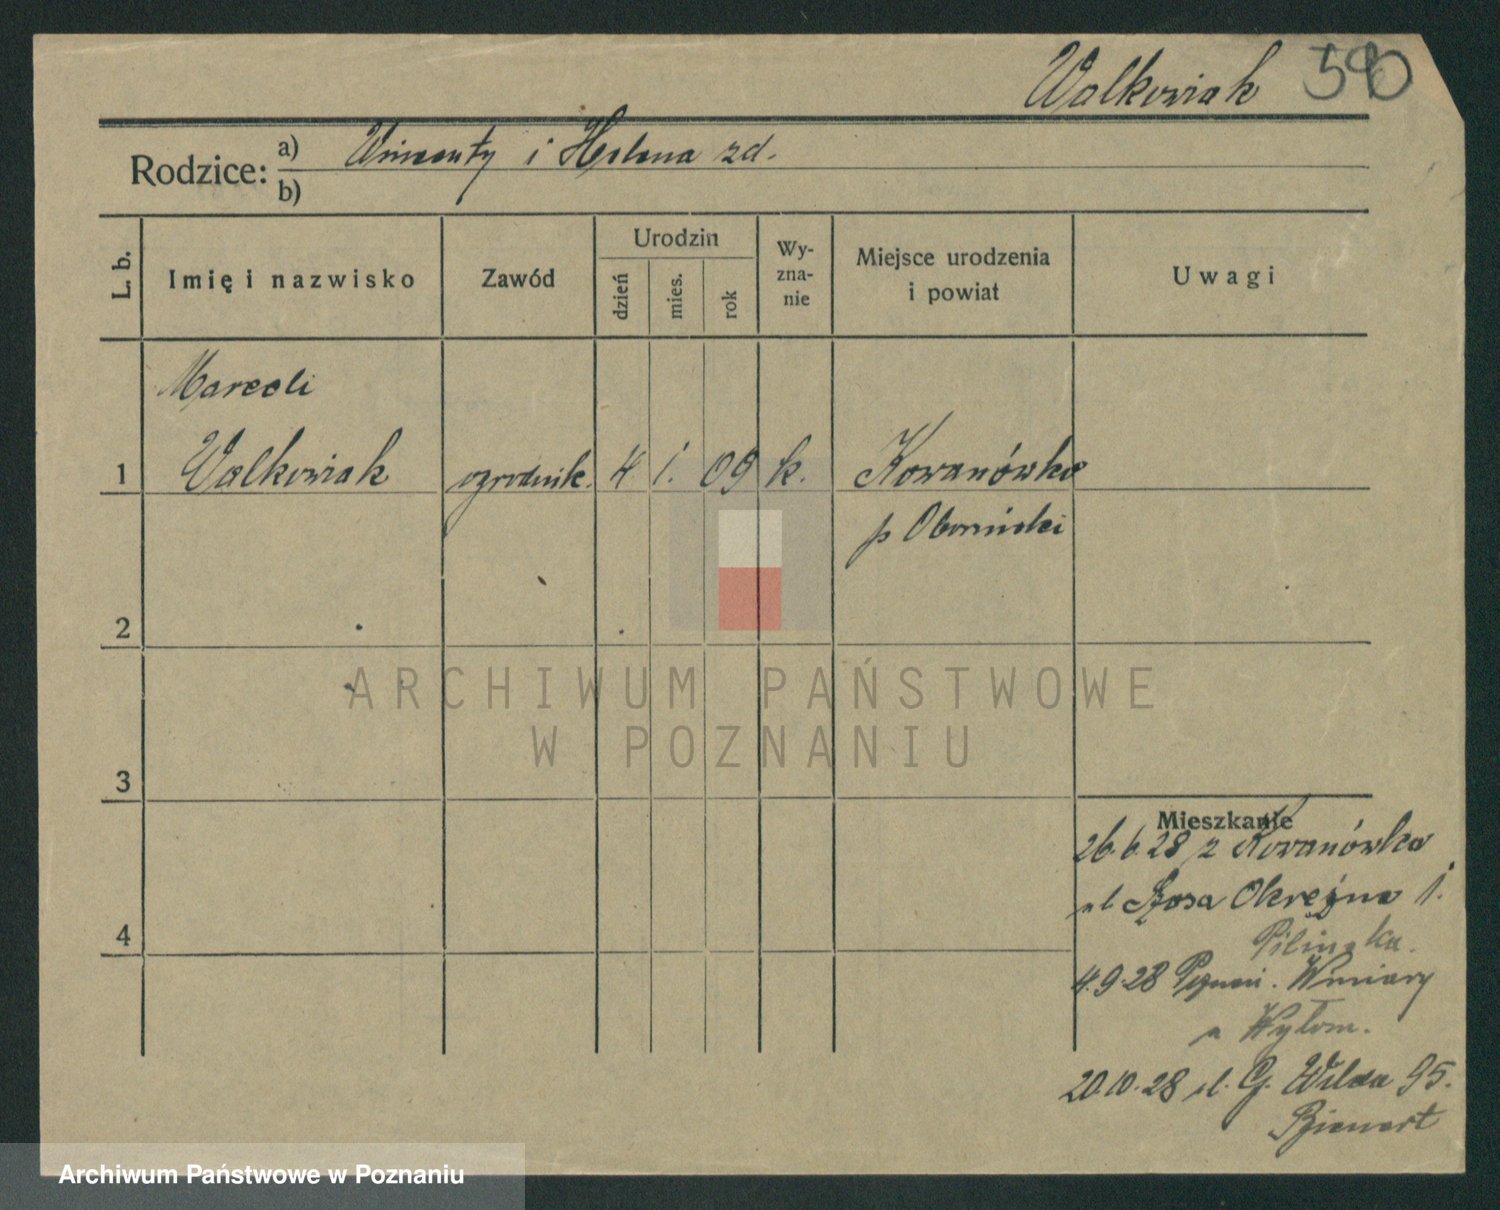 Walkowiak 590
Rodzice: a) Wincenty i Helena zd.
b)
L. b. Imię i nazwisko Zawód Urodzin dzień mies. rok Wy-zna-nie Miejsce urodzenia i powiat Uwagi
Marceli
1 Walkowiak ogrodnik. 4 1. 09 k. Kowanówko
p Obornicki
2
3
Mieszkanie
26.6.28 z Kowanówko
ul Szosa Okrężna 1.
4
4.9.28 Winiary
Wyłom.
20.10.28 ul. G. Wilda 95.
ARCHIWUM PAŃSTWOWE
W POZNANIU
Archiwum Państwowe w Poznaniu